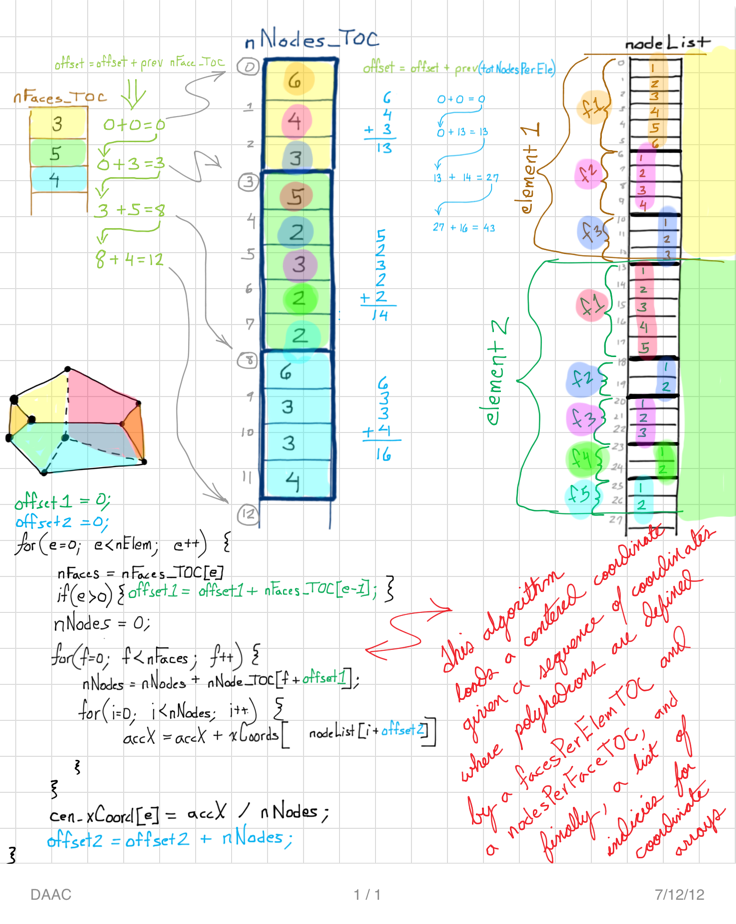 nNodes_TOC
nodeList
offset = offset + prev nFace_TOC
offset = offset + prev(totNodesPerEle)
nFaces_TOC
3
5
4
0+0=0
0+3=3
3+5=8
8+4=12
0
1
2
3
4
5
6
7
8
9
10
11
12
6
4
3
5
2
3
2
2
6
3
3
4
6
4
+ 3
13
5
2
3
2
+ 2
14
6
3
3
+ 4
16
0+0=0
0+13=13
13 + 14 = 27
27 + 16 = 43
element 1
f1
f2
f3
element 2
f1
f2
f3
f4
f5
0
1
2
3
4
5
6
7
8
9
10
11
12
13
14
15
16
17
18
19
20
21
22
23
24
25
26
27
1
2
3
4
5
6
1
2
3
4
1
2
3
1
2
3
4
5
1
2
1
2
3
1
2
1
2
offset1 = 0;
offset2 = 0;
for(e=0; e<nElem; e++) {
nFaces = nFaces_TOC[e]
if(e>0){offset1 = offset1 + nFaces_TOC[e-1]; }
nNodes = 0;
for(f=0; f<nFaces; f++) {
nNodes = nNodes + nNode_TOC[f+offset1];
for(i=0; i<nNodes; i++) {
accX = accX + xCoords[ nodeList[i+offset2]]
}
}
cen_xCoord[e] = accX / nNodes;
offset2 = offset2 + nNodes;
}
This algorithm
loads a centered coordinate
given a sequence of coordinates
where polyhedrons are defined
by a facesPerElemTOC and
a nodesPerFaceTOC, and
finally, a list of
indicies for
coordinate
arrays
DAAC
1 / 1
7/12/12